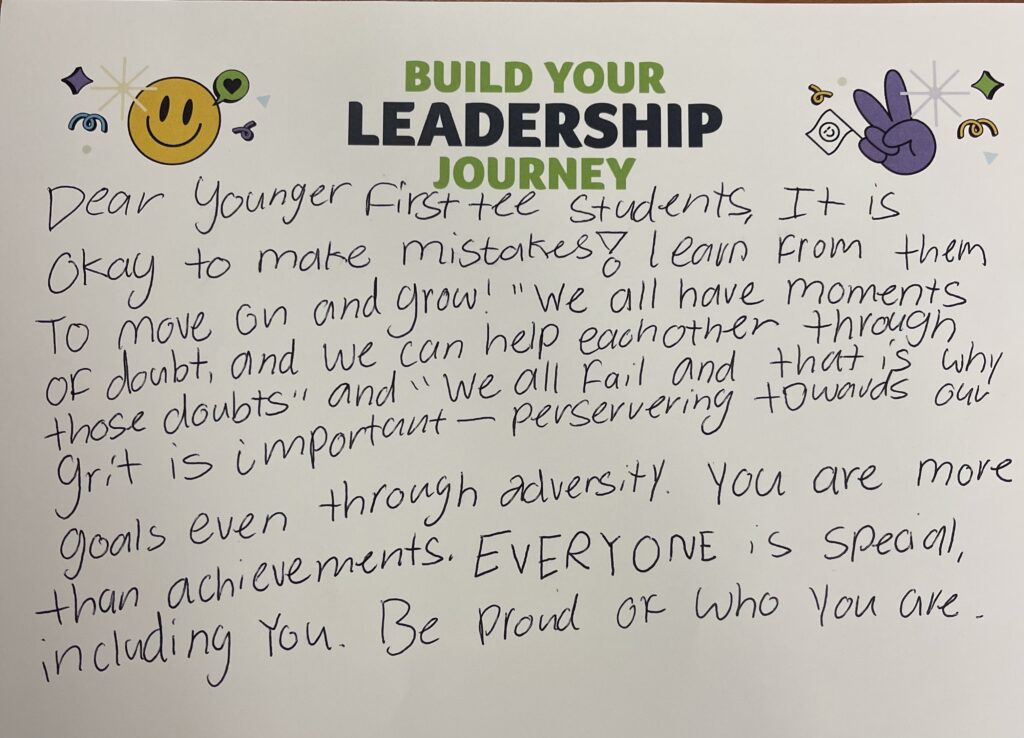 BUILD YOUR
LEADERSHIP
JOURNEY
Dear Younger First tee students, It is
okay to make mistakes! learn from them
To move on and grow! "We all have moments
of doubt, and we can help eachother through
those doubts" and "We all fail and that is why
grit is important - perservering towards our
goals even through adversity. You are more
than achievements. EVERYONE is special,
including You. Be proud of who you are.